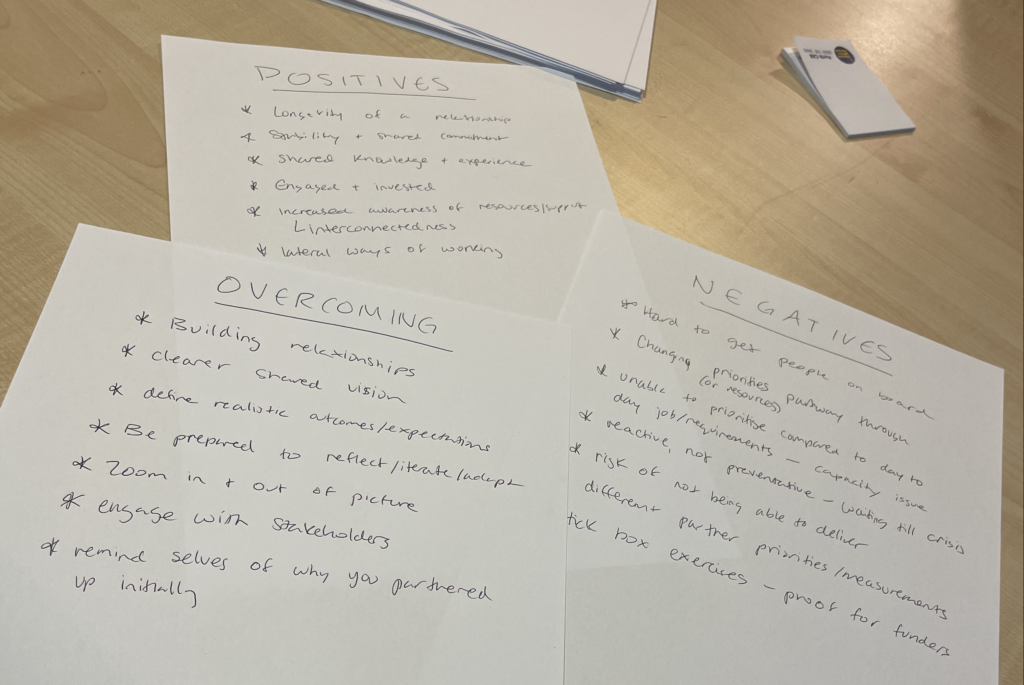 POSITIVES
* Longevity of a relationship
* Stability + shared commitment
* Shared knowledge + experience
* Engaged + invested
* increased awareness of resources/support
L interconnectedness
* lateral ways of working
OVERCOMING
* Building relationships
* clearer shared vision
* define realistic outcomes/expectations
* Be prepared to reflect/iterate/adapt
* Zoom in + out of picture
* engage with stakeholders
* remind selves of why you partnered
up initially
NEGATIVES
* Hard to get people on board
* Changing priorities pathway through
(or resources)
* unable to prioritise compared to day to
day job/requirements – capacity issue
* reactive, not preventative – waiting till crisis
* risk of not being able to deliver
different partner priorities/measurements
tick box exercises – proof for funders